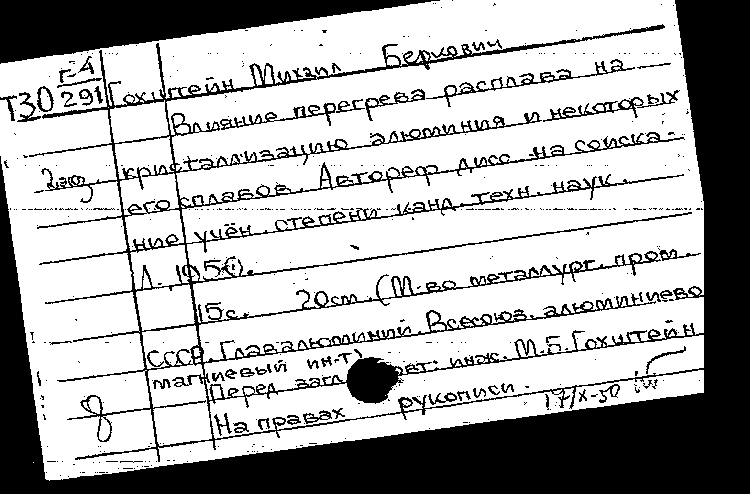 Т30 г-4/291 Гохштейн Михаил Беркович
Влияние перегрева расплава на
2 экз. кристаллизацию алюминия и некоторых
его сплавов. Автореф. дисс. на соиска-
ние учён. степени канд. техн. наук.
Л., 1950.
15с. 20см. (М-во металлург. пром.
СССР. Главалюминий. Всесоюз. алюминиево
магниевый ин-т)
Перед загл. инж. М.Б. Гохштейн
На правах рукописи.
8
17/X-50